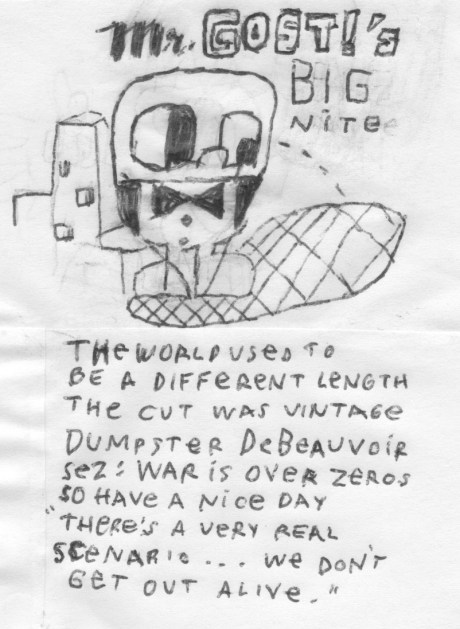 Mr. GOST!'s
BIG
NITE
THE WORLD USED TO
BE A DIFFERENT LENGTH
THE CUT WAS VINTAGE
DUMPSTER DeBEAUVOIR
SEZ: WAR IS OVER ZEROS
SO HAVE A NICE DAY
"THERE'S A VERY REAL
SCENARIO... WE DON'T
GET OUT ALIVE."